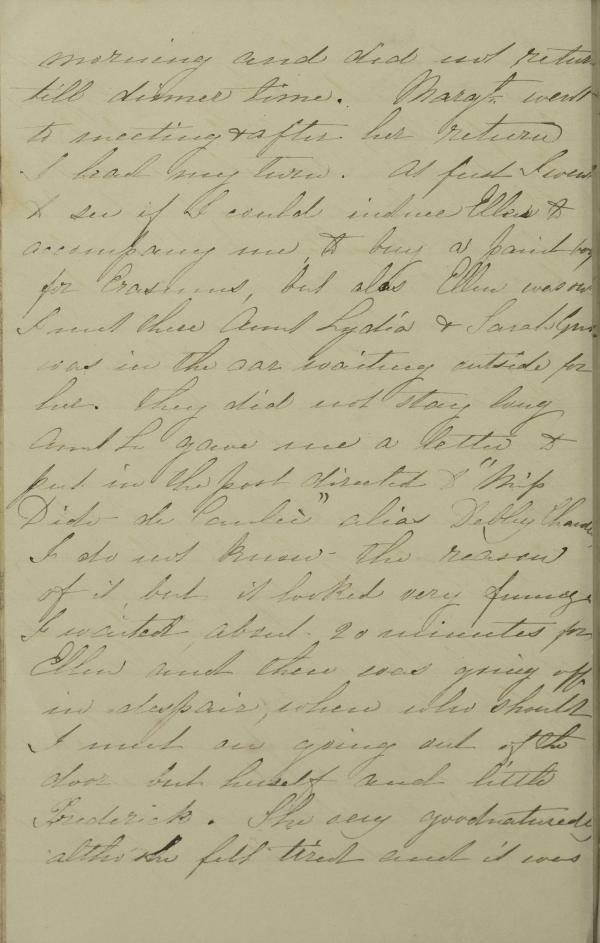 morning and did not return
till dinner time. Margt. went
to meeting & after her return
I had my turn. At first I went
to see if I could induce Ellen to
accompany me to buy a paint box
for Erasmus, but alas Ellen was out
I met there Aunt Lydia & Sarah
was in the car waiting outside for
her. They did not stay long
Aunt L gave me a letter to
put in the post directed to "Miss
Dido de" alias Debby
I do not know the reason
of it but it looked very funny
I waited about 20 minutes for
Ellen and then was going off
in despair, when who should
I meet on going out of the
door but herself and little
Frederick. She very goodnaturedly
altho she felt tired and it was